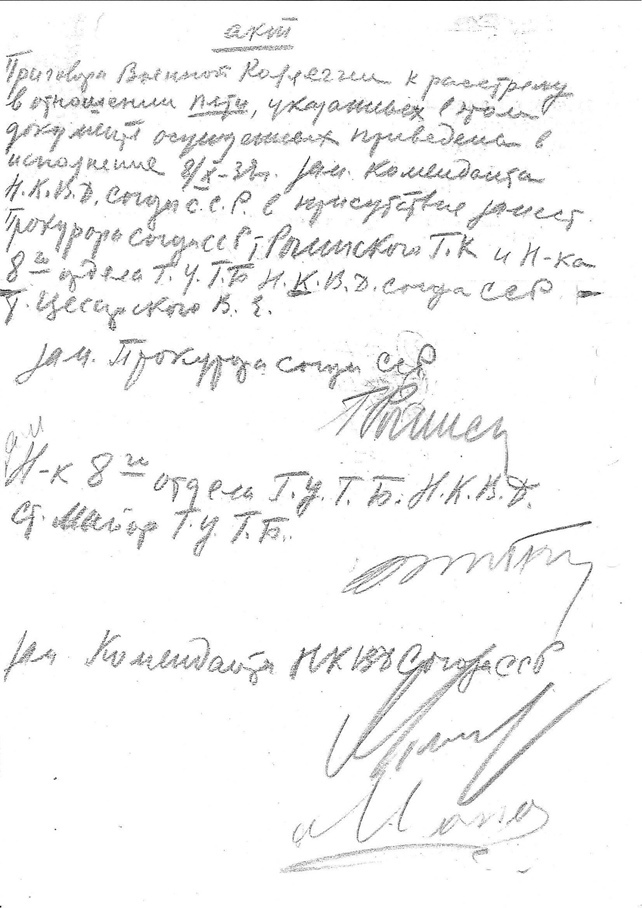 акт
Приговора Военной Коллегии к расстрелу
в отношении пяти, указанных в этом
документе осужденных приведена в
исполнение Зам. Коменданта
Н.К.В.Д. союза С.С.Р. в присутствие замест.
Прокурора союза ССР т. Рогинского Г.К и Н-ка
8го отдела Г.У.Г.Б Н.К.В.Д. союза ССР -
т. Цесарского В. Е.
Зам. Прокурора союза ССР
Г Рогинск
Н-к 8го отдела Г.У.Г.Б. Н.К.В.Д.
ст. Майор Г.У.Г.Б.
Зам Коменданта НКВД Союза ССР